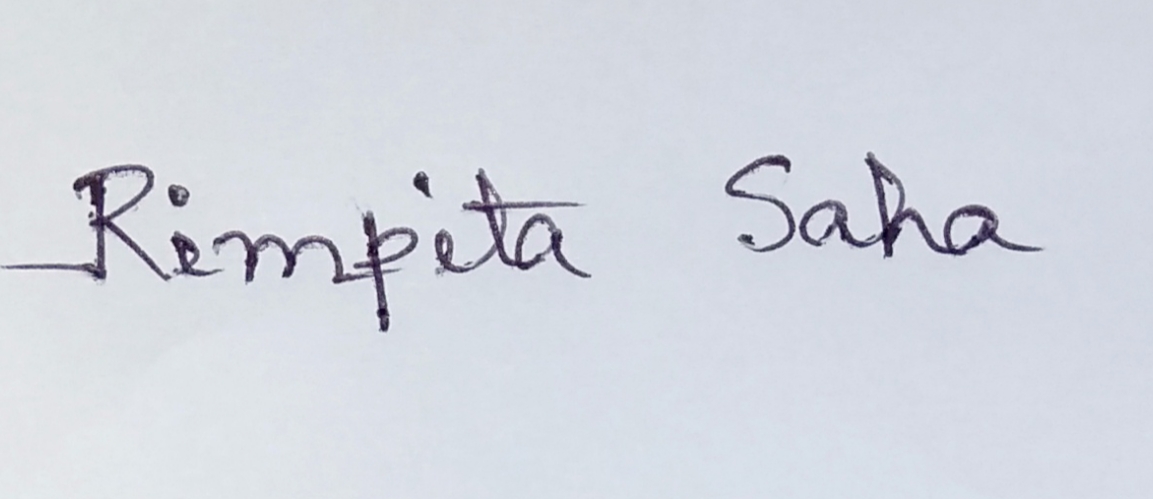 Rimpita Saha